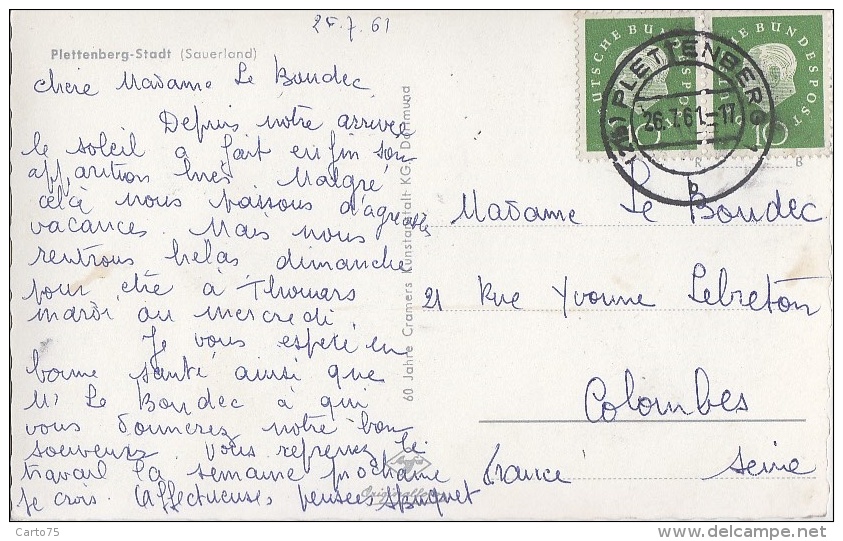 25.7.61
Plettenberg-Stadt (Sauerland)
chère Madame Le Boudec
Depuis notre arrivée
le soleil a fait enfin son
apparition hier Malgré
celà nous passons d'agréables
vacances. Mais nous
rentrons helas dimanche
pour être à Thouars
mardi ou mercredi
Je vous espère en
bonne santé ainsi que
Mr Le Boudec à qui
vous donnerez notre bon
souvenir. Vous reprenez le
travail la semaine prochaine
je crois. Affectueuses pensées
60 Jahre Cramers Kunstanstalt KG., Dortmund
Agfa
DEUTSCHE BUNDESPOST
10
DEUTSCHE BUNDESPOST
10
PLETTENBERG
26.7.61.-17
b
Madame Le Boudec
21 Rue Yvonne Lebreton
Colombes
France Seine
Carto75
www.delcampe.net